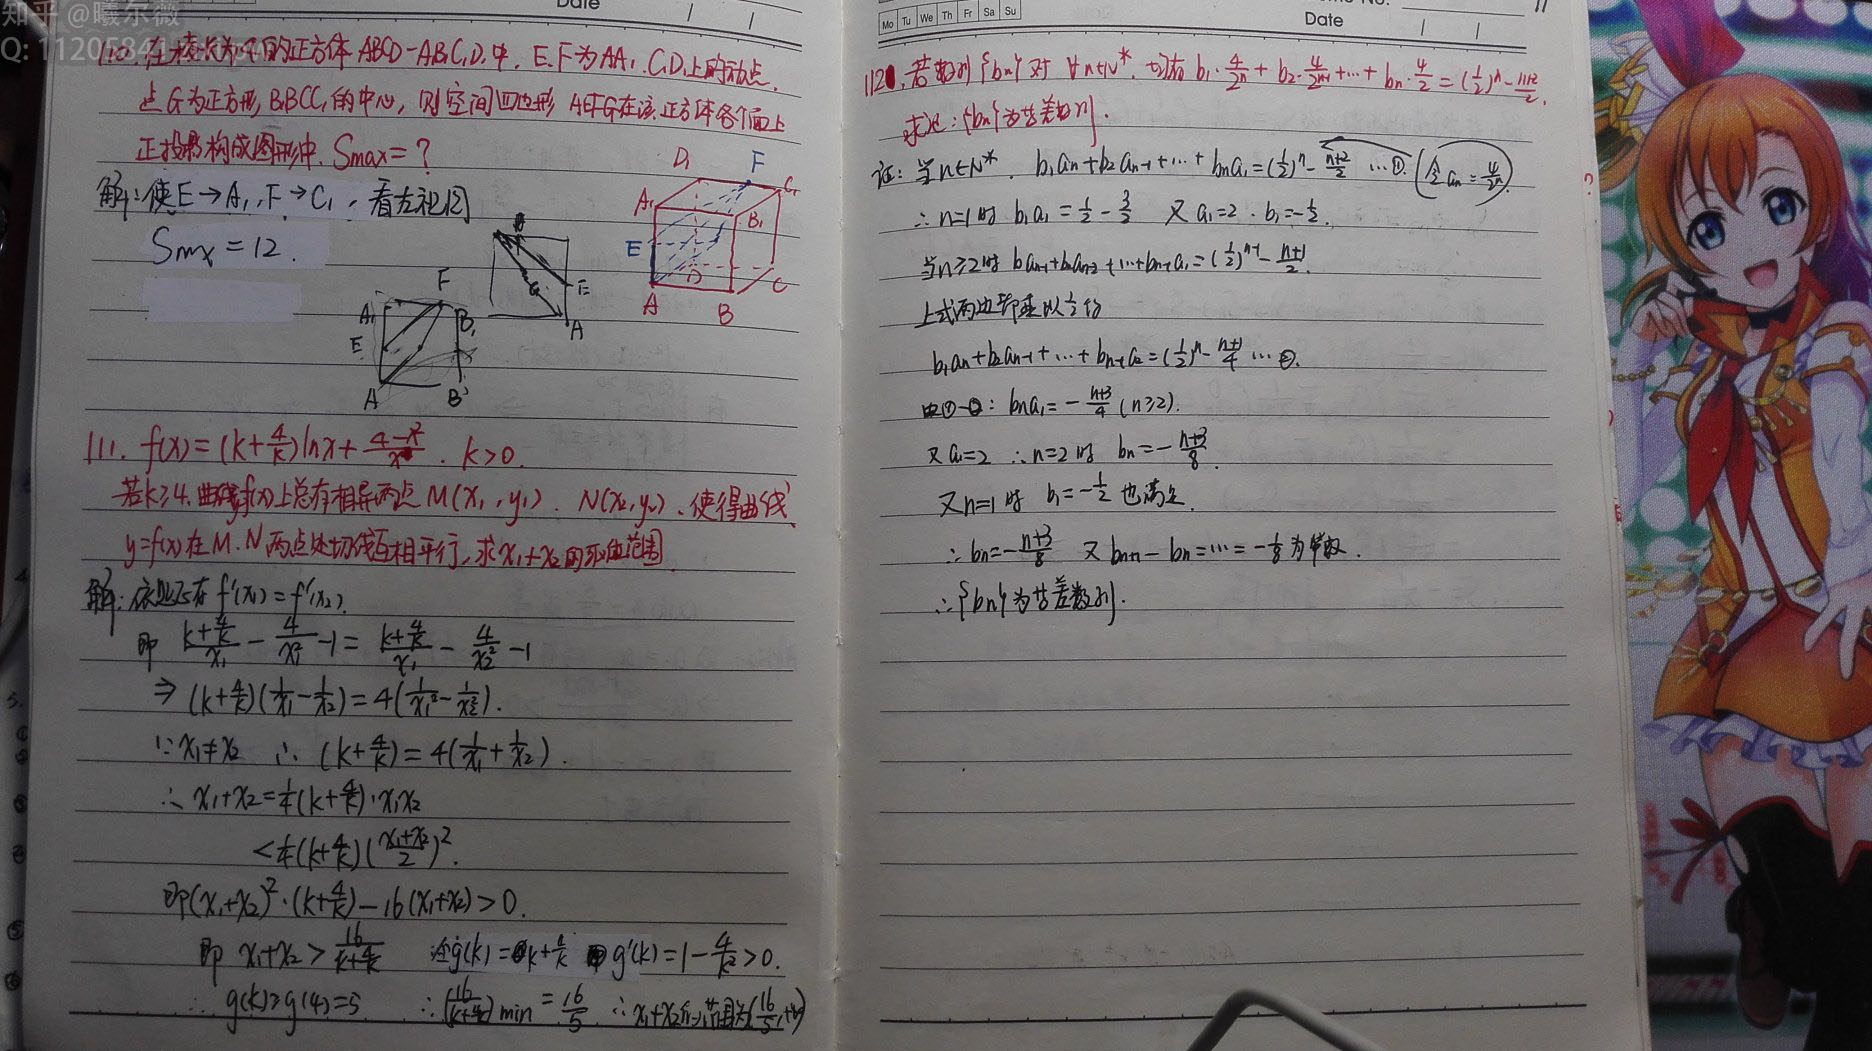 知乎 @曦尔薇
Date
110. 在棱长为4的正方体ABCD-A₁B₁C₁D₁中, E.F为AA₁, C₁D₁上的动点,
点G为正方形BB₁CC₁的中心, 则空间四边形 AEFG在该正方体各个面上
正投影构成图形中, Smax=?
解: 使E→A₁, F→C₁, 看左视图
Smax=12.
D₁ F C₁ A₁ B₁ E D A B C
G E A
A₁ F B₁ E A B
111. f(x)=(k+4/k)lnx+(4-x²)/x, k>0.
若k≥4, 曲线f(x)上总有相异两点M(x₁,y₁), N(x₂,y₂), 使得曲线
y=f(x)在M.N两点处切线互相平行, 求x₁+x₂的取值范围
解: 依题还有f'(x₁)=f'(x₂).
即 (k+4/k)/x₁ - 4/x₁² -1 = (k+4/k)/x₁ - 4/x₂² -1
⇒ (k+4/k)(1/x₁-1/x₂)=4(1/x₁²-1/x₂²).
∵x₁≠x₂ ∴ (k+4/k)=4(1/x₁+1/x₂).
∴ x₁+x₂=1/4(k+4/k)·x₁x₂
<1/4(k+4/k)((x₁+x₂)/2)².
即(x₁+x₂)²·(k+4/k)-16(x₁+x₂)>0.
即 x₁+x₂>16/(k+4/k) 令g(k)=k+4/k g'(k)=1-4/k²>0.
∴ g(k)≥g(4)=5 ∴(16/(k+4/k))min=16/5 ∴x₁+x₂的范围为(16/5,+∞)
Mo Tu We Th Fr Sa Su
Date
112. 若数列{bn}对∀n∈N*, 均有 b₁·4/2ⁿ+b₂·4/2ⁿ⁻¹+…+bn·4/2=(1/2)ⁿ-(n+2)/2.
求证: {bn}为等差数列.
证: 当n∈N*, b₁an+b₂an-1+…+bna₁=(1/2)ⁿ-(n+2)/2 …①. (令an=4/2ⁿ)
∴n=1时 b₁a₁=1/2-3/2 又a₁=2. b₁=-1/2.
当n≥2时 b₁an-1+b₂an-2+…+bn-1a₁=(1/2)ⁿ⁻¹-(n+1)/2.
上式两边即乘以1/2得
b₁an+b₂an-1+…+bn-1a₂=(1/2)ⁿ-(n+1)/4 …②.
由①-②: bna₁=-(n+3)/4 (n≥2).
又a₁=2 ∴n=2时 bn=-(n+3)/8.
又n=1时 b₁=-1/2 也满足.
∴bn=-(n+3)/8 又bn+1-bn=…=-1/8为常数.
∴{bn}为等差数列.